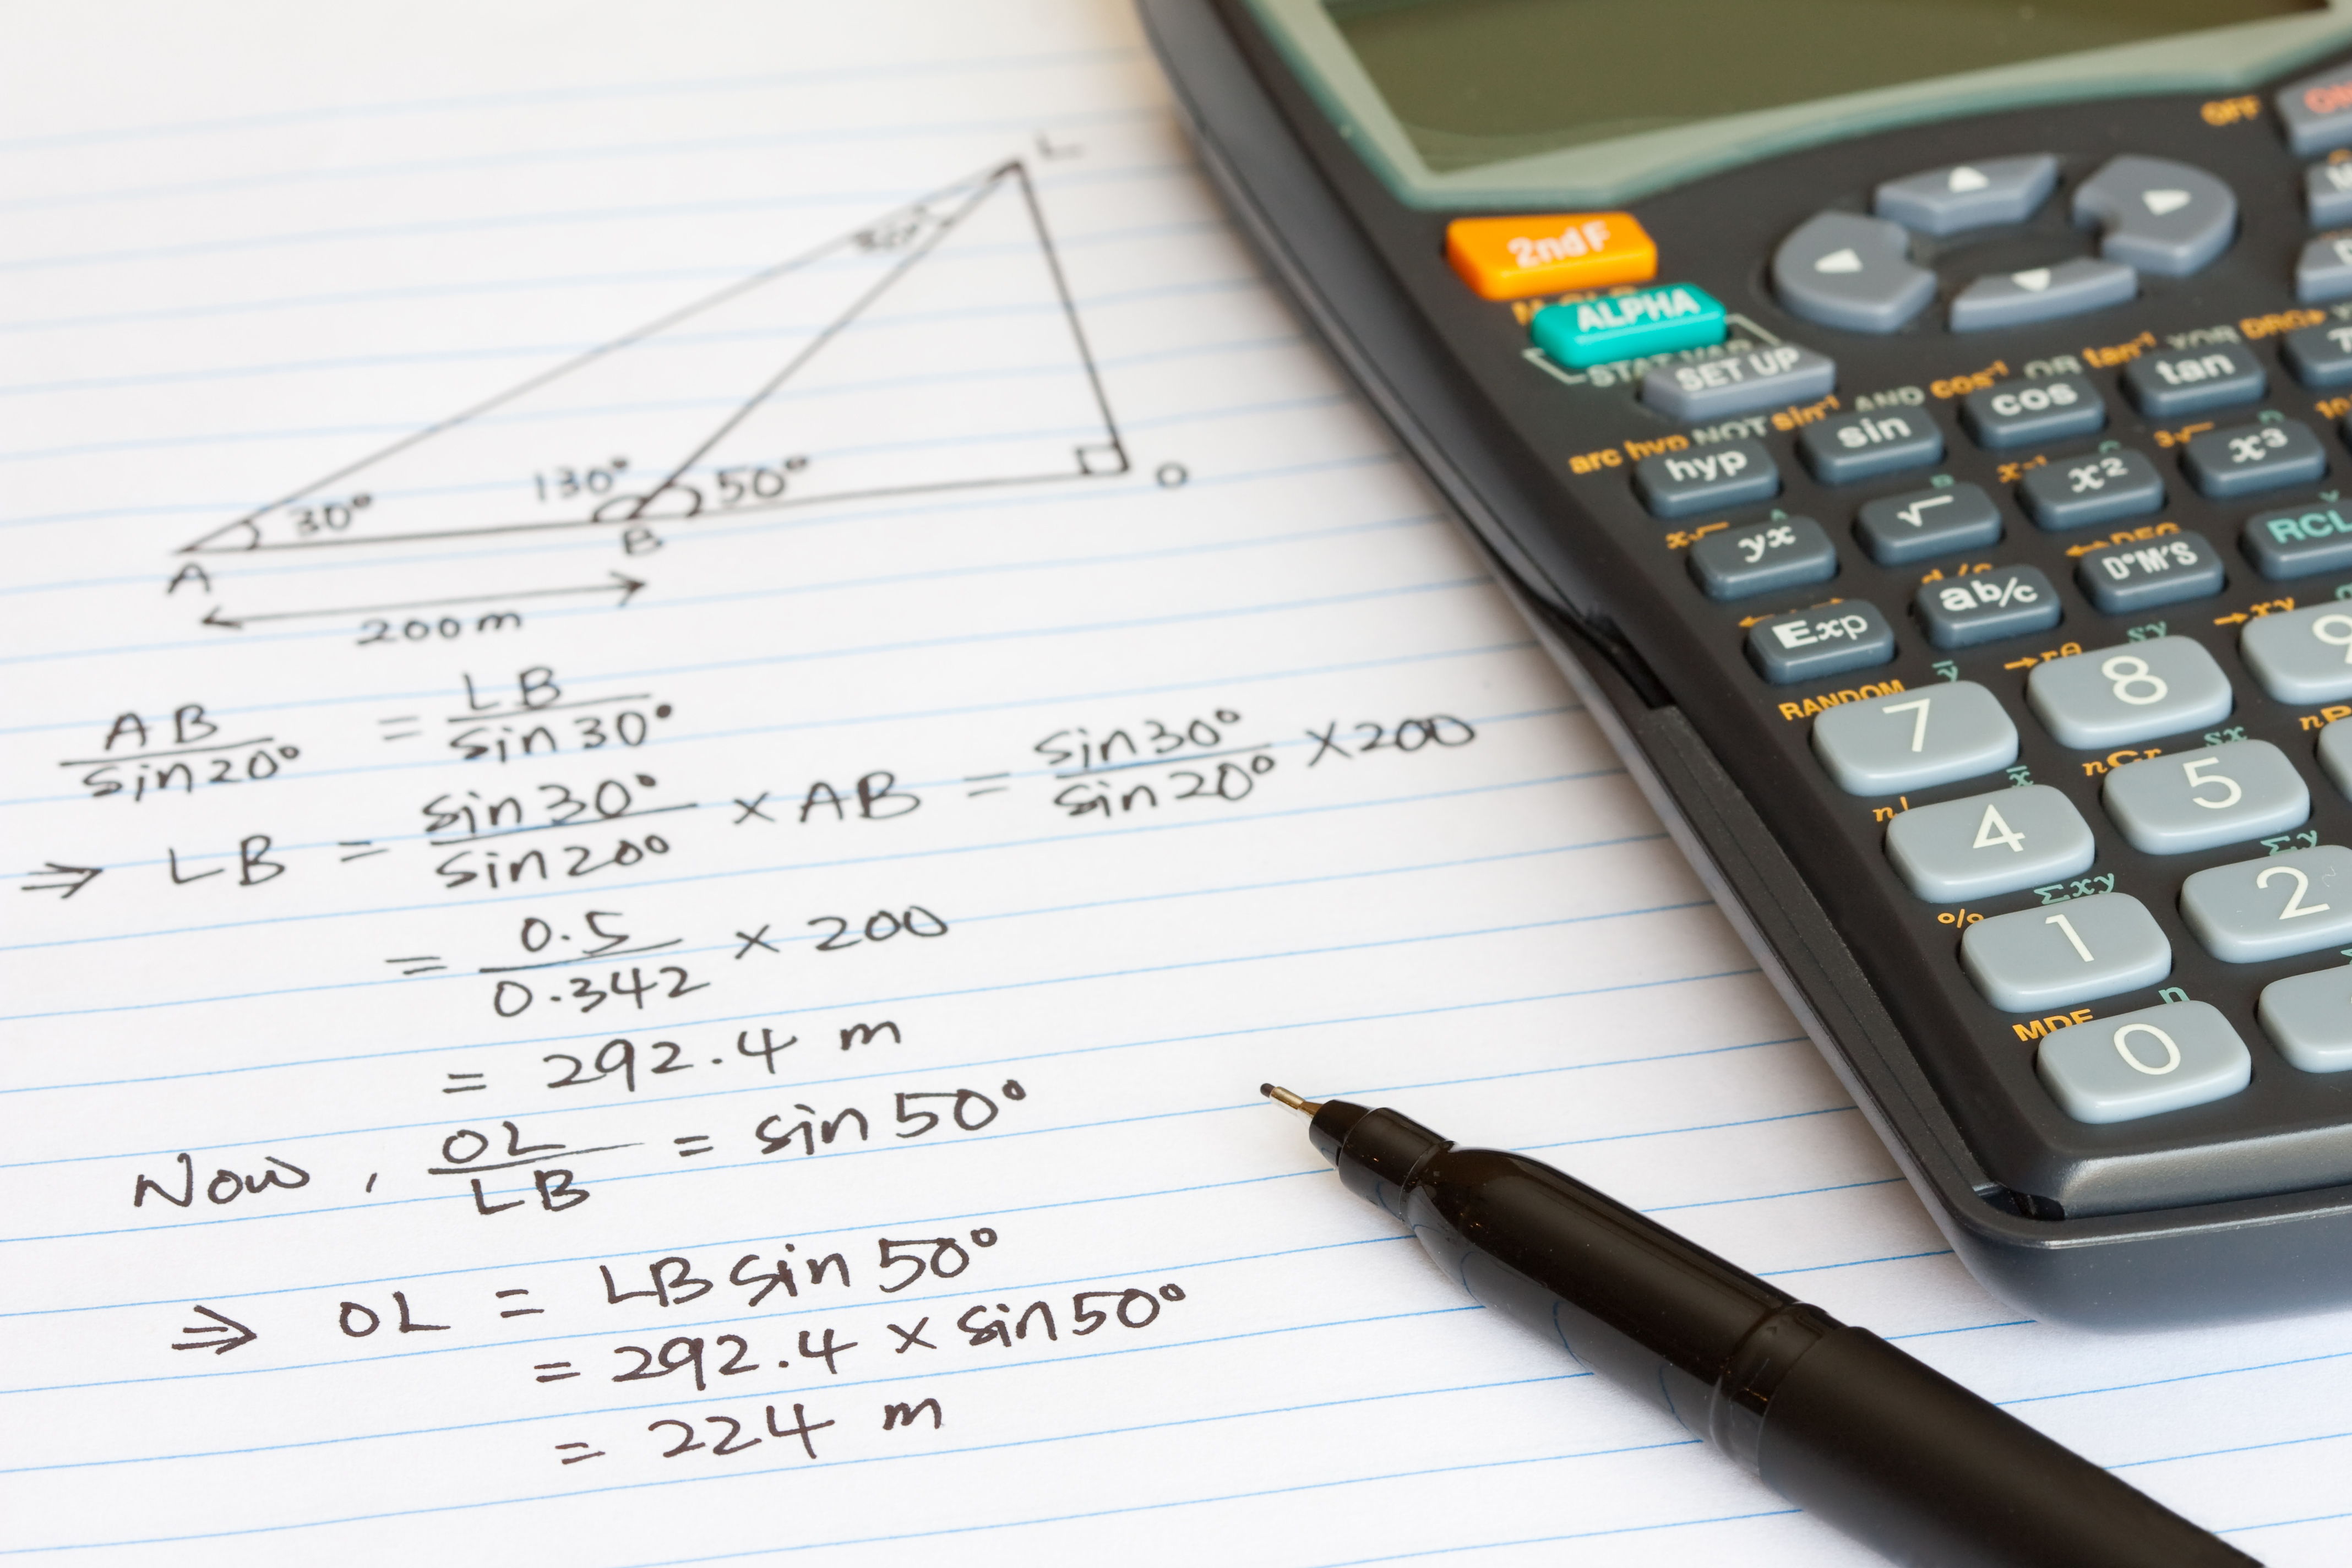 L
130° 50°
30°
O
B
A
200m
AB / sin20° = LB / sin30°
⇒ LB = sin30° / sin20° × AB = sin30° / sin20° × 200
= 0.5 / 0.342 × 200
= 292.4 m
Now, OL / LB = sin50°
⇒ OL = LB sin50°
= 292.4 × sin50°
= 224 m
OFF
2ndF
ALPHA
SET UP
arc hyp NOT sin⁻¹ AND cos⁻¹ OR tan⁻¹ XOR DRG▸
hyp sin cos tan
yx √ x² x³
◂▸DEG
Exp ab/c D°M'S RCL
→rθ →xy
RANDOM
7 8 9
n! nCr
4 5
% Σxy Σy
1 2
MDF n
0